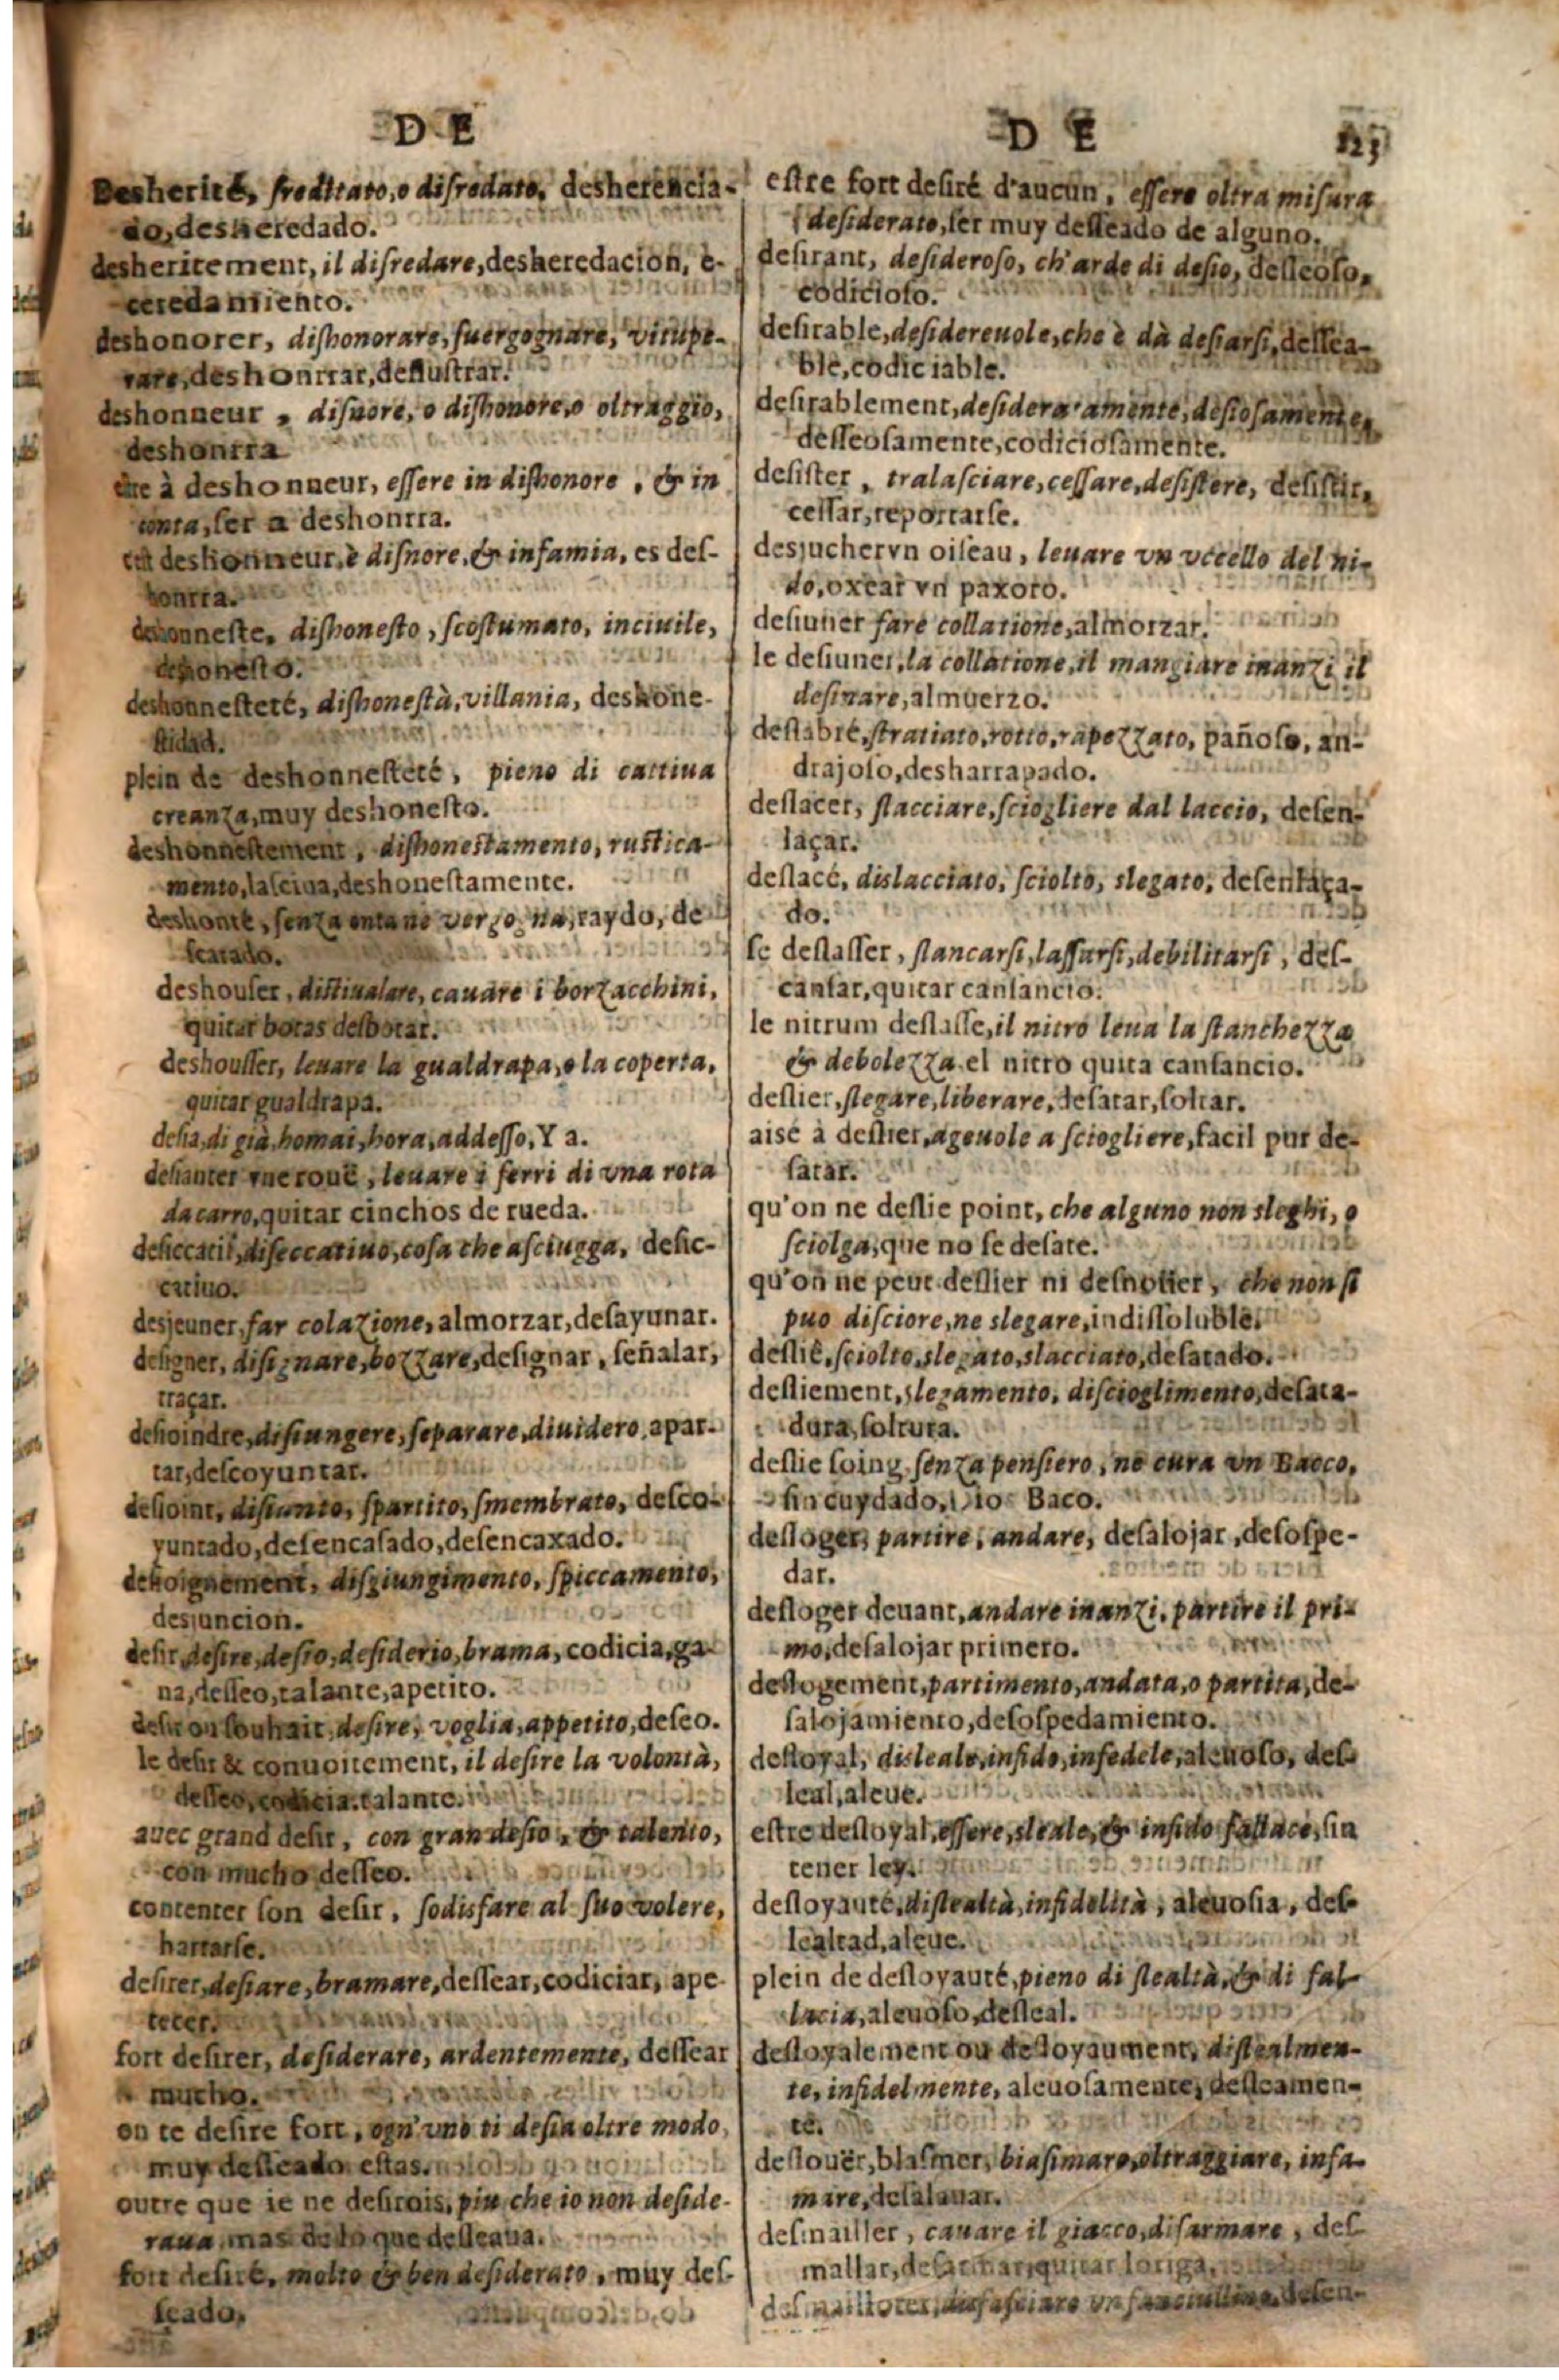 D E
Desherité, sreditato, o disredato, desherencia-
do, desheredado.
desheritement, il disredare, desheredacion, e-
ceredamiento.
deshonorer, dishonorare, suergognare, vitupe-
rare, deshonrrar, deslustrar.
deshonneur, disnore, o dishonore, o oltraggio,
deshonrra
être à deshonneur, essere in dishonore, & in
onta, ser a deshonrra.
c'est deshonneur, è disnore, & infamia, es des-
honrra.
deshonneste, dishonesto, scostumato, inciuile,
deshonesto.
deshonnesteté, dishonestà, villania, deshone-
stidad.
plein de deshonnesteté, pieno di cattiua
creanza, muy deshonesto.
deshonnestement, dishonestamento, rustica-
mento, lasciua, deshonestamente.
deshonté, senza onta nè vergogna, raydo, de
scarado.
deshouser, distiualare, cauare i borzacchini,
quitar botas desbotar.
deshousser, leuare la gualdrapa, o la coperta,
quitar gualdrapa.
desia, di già, homai, hora, addesso, Y a.
desianter vne rouë, leuare i ferri di vna rota
da carro, quitar cinchos de rueda.
desiccatif, diseccatiuo, cosa che asciugga, desic-
catiuo.
desjeuner, far colazione, almorzar, desayunar.
designer, disignare, bozzare, designar, señalar,
traçar.
desioindre, disiungere, separare, diuidero, apar-
tar, descoyuntar.
desioint, disiunto, spartito, smembrato, desco-
yuntado, desencasado, desencaxado.
desioignement, disgiungimento, spiccamento,
desjuncion.
desir, desire, desio, desiderio, brama, codicia, ga-
na, desseo, talante, apetito.
desir ou souhait, desire, voglia, appetito, deseo.
le desir & conuoitement, il desire la volontà,
desseo, codicia, talante.
auec grand desir, con gran desio, & talento,
con mucho desseo.
contenter son desir, sodisfare al suo volere,
hartarse.
desirer, desiare, bramare, dessear, codiciar, ape-
tecer.
fort desirer, desiderare, ardentemente, dessear
mucho.
on te desire fort, ogn'vno ti desia oltre modo,
muy desseado estas.
outre que ie ne desirois, piu che io non deside-
raua, mas de lo que desseaua.
fort desiré, molto & ben desiderato, muy des-
seado,
D E 125
estre fort desiré d'aucun, essere oltra misura
desiderato, ser muy desseado de alguno.
desirant, desideroso, ch'arde di desio, desseoso,
codicioso.
desirable, desidereuole, che è dà desiarsi, dessea-
ble, codiciable.
desirablement, desideratamente, desiosamente,
desseosamente, codiciosamente.
desister, tralasciare, cessare, desistere, desistir,
cessar, reportarse.
desjucher vn oiseau, leuare vn vccello del ni-
do, oxear vn paxoro.
desiuner fare collatione, almorzar.
le desiuner, la collatione, il mangiare inanzi il
desinare, almuerzo.
deslabré, stratiato, rotto, rapezzato, pañoso, an-
drajoso, desharrapado.
deslacer, slacciare, sciogliere dal laccio, desen-
laçar.
deslacé, dislacciato, sciolto, slegato, desenlaça-
do.
se deslasser, stancarsi, lassarsi, debilitarsi, des-
cansar, quitar cansancio.
le nitrum deslasse, il nitro leua la stanchezza
& debolezza, el nitro quita cansancio.
deslier, slegare, liberare, desatar, soltar.
aisé à deslier, ageuole a sciogliere, facil pur de-
satar.
qu'on ne deslie point, che alguno non sleghi, o
sciolga, que no se desate.
qu'on ne peut deslier ni desnouer, che non si
puo disciore, ne slegare, indissoluble.
deslié, sciolto, slegato, slacciato, desatado.
desliement, slegamento, discioglimento, desata-
dura, soltura.
deslie soing, senza pensiero, ne cura vn Bacco,
sin cuydado, Dio Baco.
desloger, partire, andare, desalojar, desospe-
dar.
desloger deuant, andare inanzi, partire il pri-
mo, desalojar primero.
deslogement, partimento, andata, o partita, de-
salojamiento, desospedamiento.
desloyal, disleale, infido, infedele, aleuoso, des-
leal, aleue.
estre desloyal, essere, sleale, & infido fallace, sin
tener ley.
desloyauté, dislealtà, infidelità, aleuosia, des-
lealtad, aleue.
plein de desloyauté, pieno di slealtà, & di fal-
lacia, aleuoso, desleal.
desloyalement ou desloyaument, dislealmen-
te, infidelmente, aleuosamente, desleamen-
te.
deslouër, blasmer, biasimare, oltraggiare, infa-
mare, desalauar.
desmailler, cauare il giacco, disarmare, des-
mallar, desarmar, quitar loriga.
desmailloter, disfasciare vn fanciullino, desen-